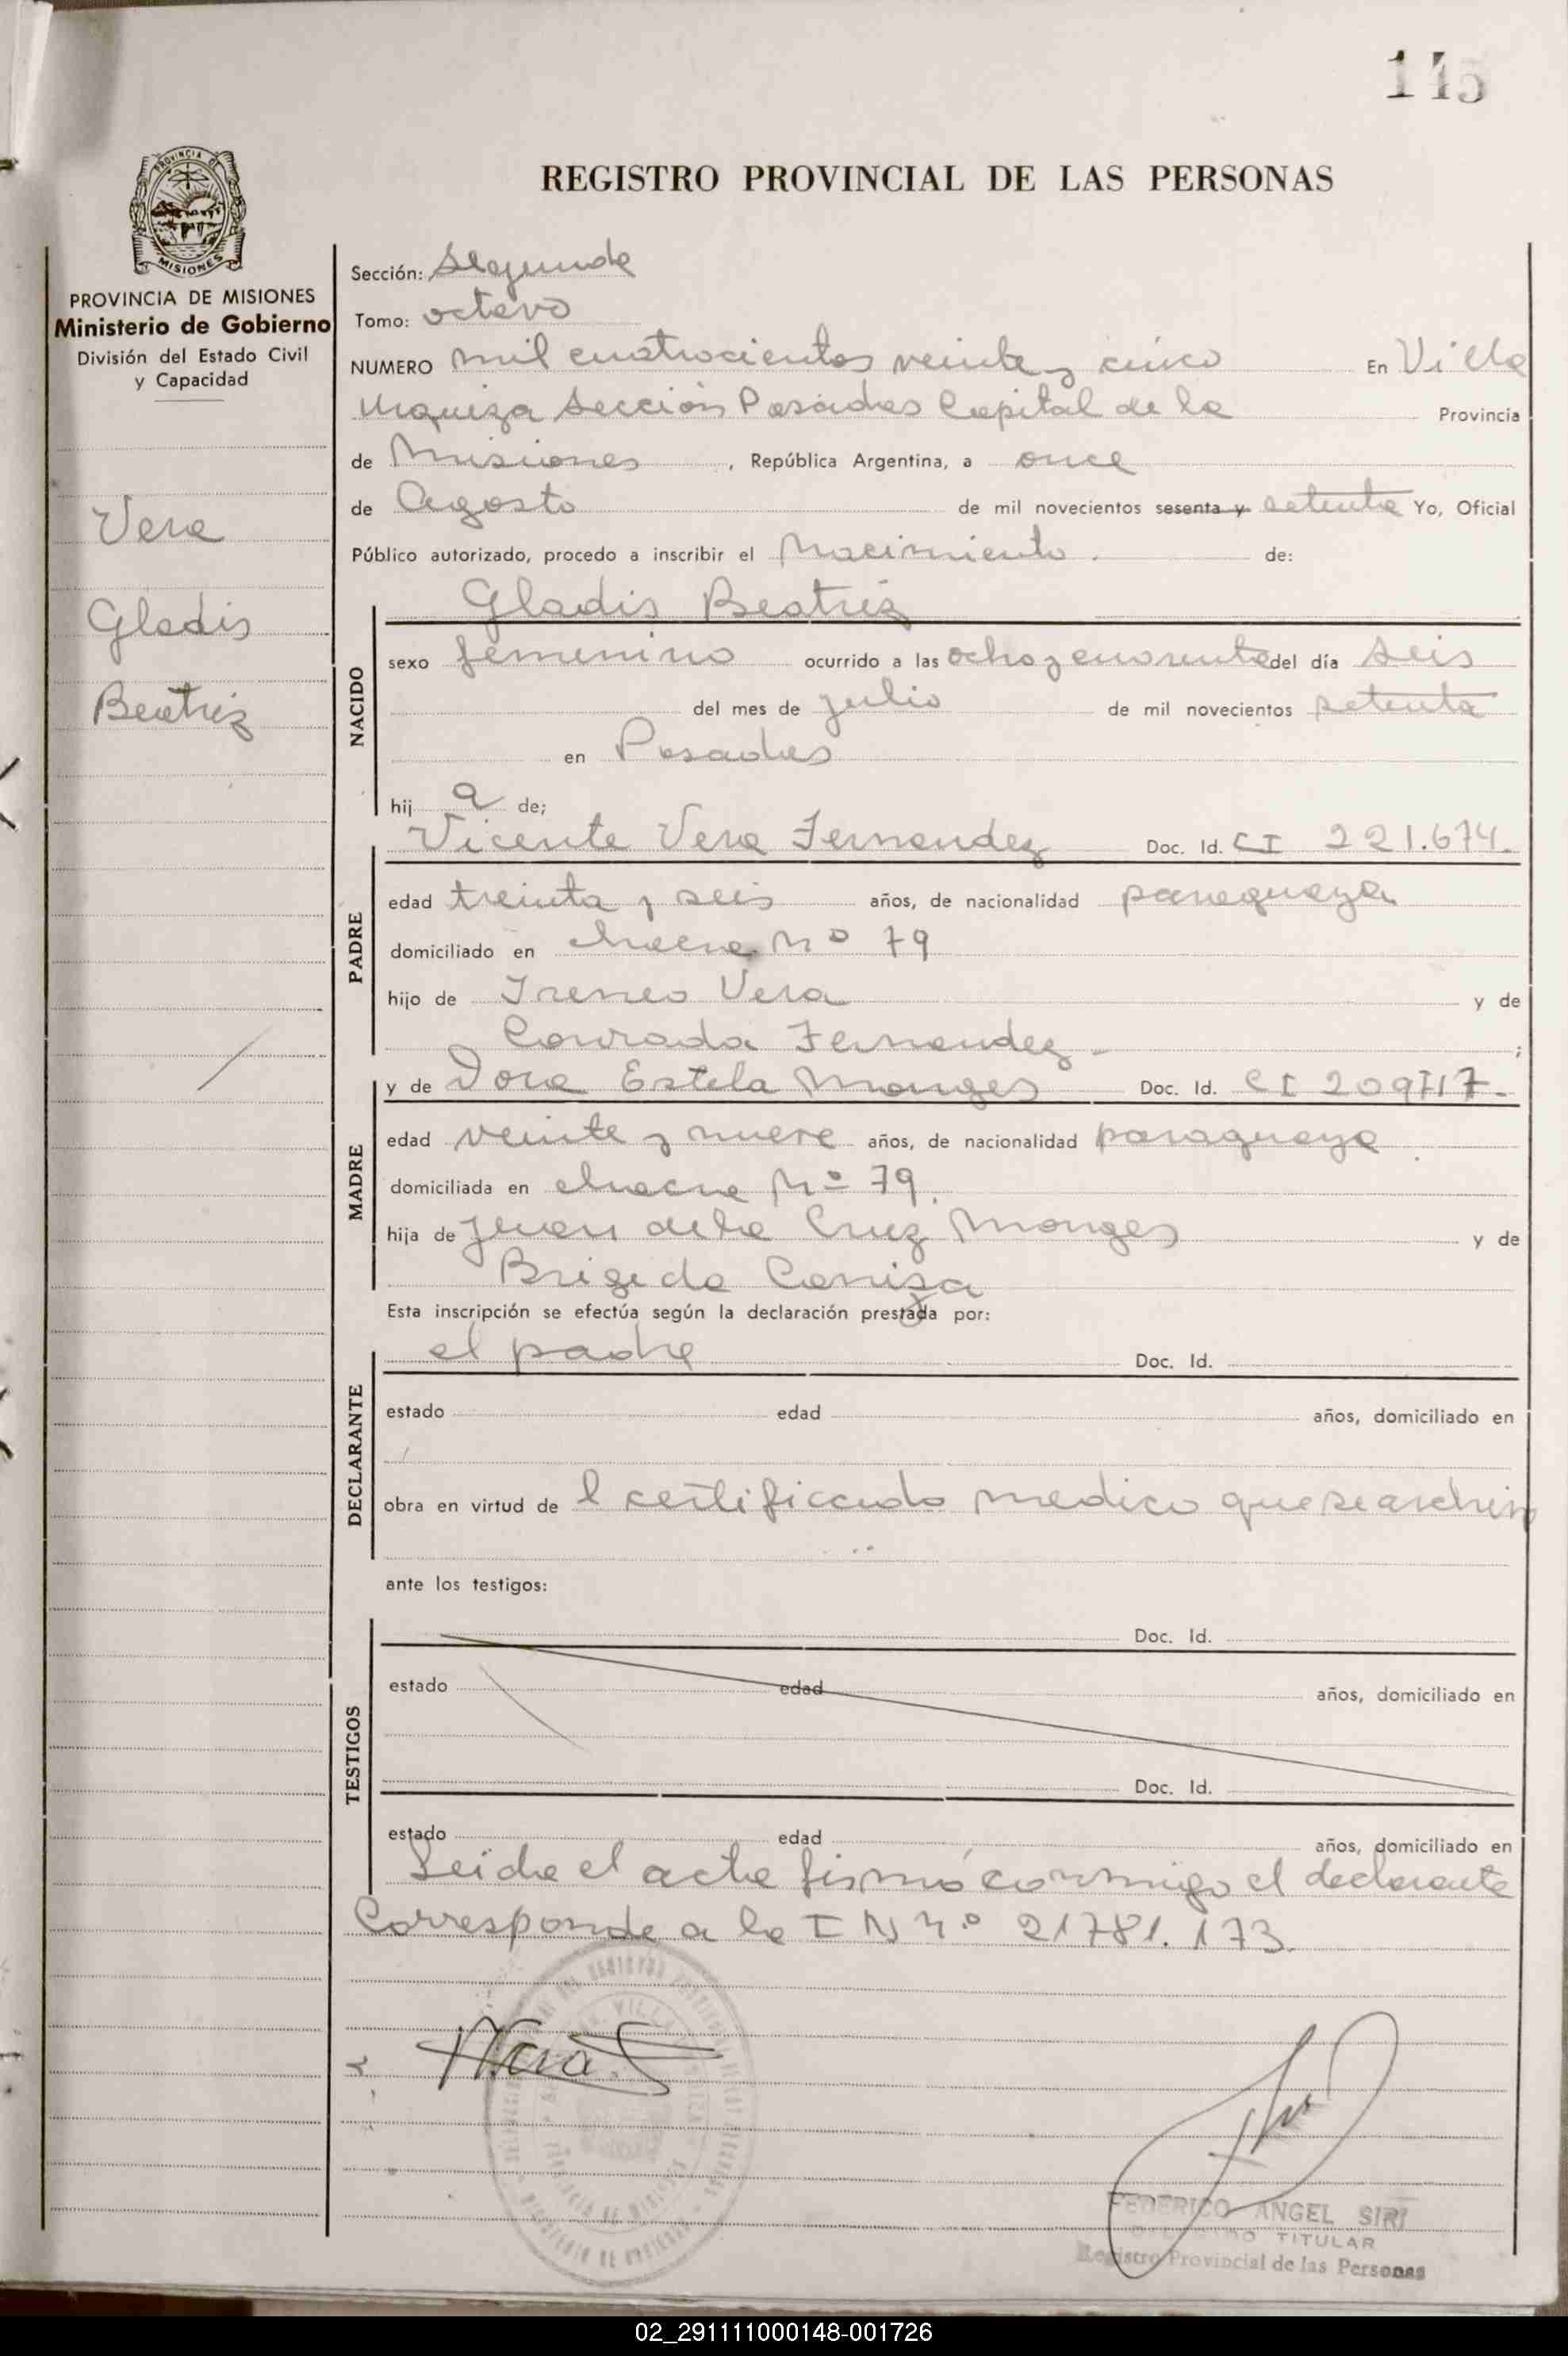 145
REGISTRO PROVINCIAL DE LAS PERSONAS
PROVINCIA DE MISIONES
PROVINCIA DE MISIONES
Ministerio de Gobierno
División del Estado Civil
y Capacidad
Vera
Gladis
Beatriz
Sección: Segunda
Tomo: octavo
NUMERO mil cuatrocientos veinte y cinco En Villa
Urquiza Sección Posadas Capital de la Provincia
de Misiones, República Argentina, a once
de Agosto de mil novecientos sesenta y setenta Yo, Oficial
Público autorizado, procedo a inscribir el Nacimiento. de:
Gladis Beatriz
NACIDO
sexo femenino ocurrido a las ocho y cuarenta del día seis
del mes de julio de mil novecientos setenta
en Posadas
hij a de;
Vicente Vera Fernandez Doc. Id. CI 221.674.
PADRE
edad treinta y seis años, de nacionalidad paraguaya
domiciliado en chacra Nº 79
hijo de Ireneo Vera y de
Conrada Fernandez - ;
y de Dora Estela Monges Doc. Id. CI 209717-
MADRE
edad veinte y nueve años, de nacionalidad paraguaya
domiciliada en chacra Nº 79.
hija de Juan de la Cruz Monges y de
Brigida Caniza
Esta inscripción se efectúa según la declaración prestada por:
el padre Doc. Id.
DECLARANTE
estado edad años, domiciliado en
obra en virtud de l certificado medico que se archiva
ante los testigos:
Doc. Id.
TESTIGOS
estado edad años, domiciliado en
Doc. Id.
estado edad años, domiciliado en
Leida el acta firmó conmigo el declarante
Corresponde a la I N nº 21781.173.
Vera
FEDERICO ANGEL SIRI
TITULAR
Registro Provincial de las Personas
02_291111000148-001726